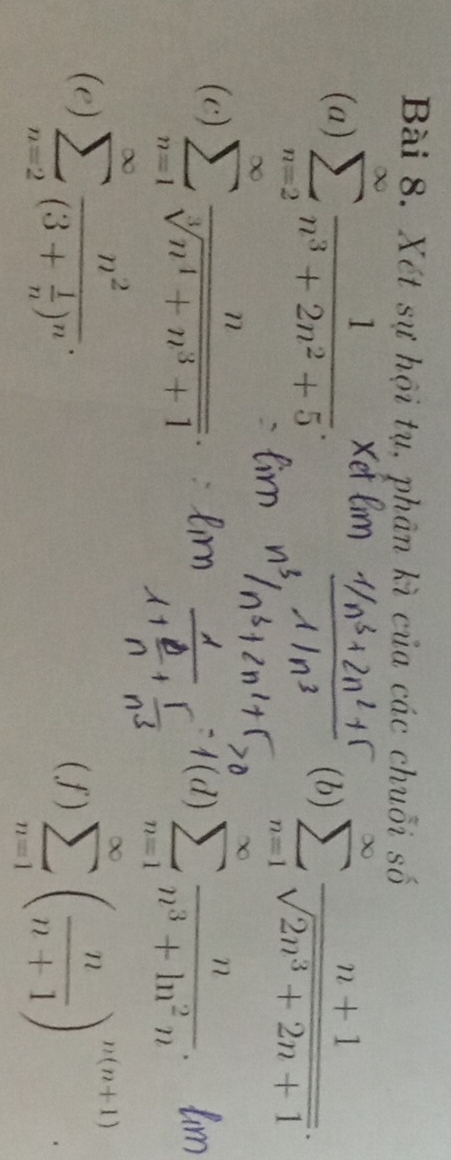 Bài 8. Xét sự hội tụ, phân kì của các chuỗi số
(a) ∑_{n=2}^{∞} 1/(n³ + 2n² + 5).
Xét lim (1/n³+2n²+5)/(1/n³)
: lim n³/n³+2n²+5 >0
: lim 1/(1+2/n+5/n³) = 1
(b) ∑_{n=1}^{∞} (n + 1)/√(2n³ + 2n + 1).
(c) ∑_{n=1}^{∞} n/∛(n⁴ + n³ + 1).
(d) ∑_{n=1}^{∞} n/(n³ + ln² n).
lim
(e) ∑_{n=2}^{∞} n²/(3 + 1/n)ⁿ.
(f) ∑_{n=1}^{∞} (n/(n + 1))^{n(n+1)}